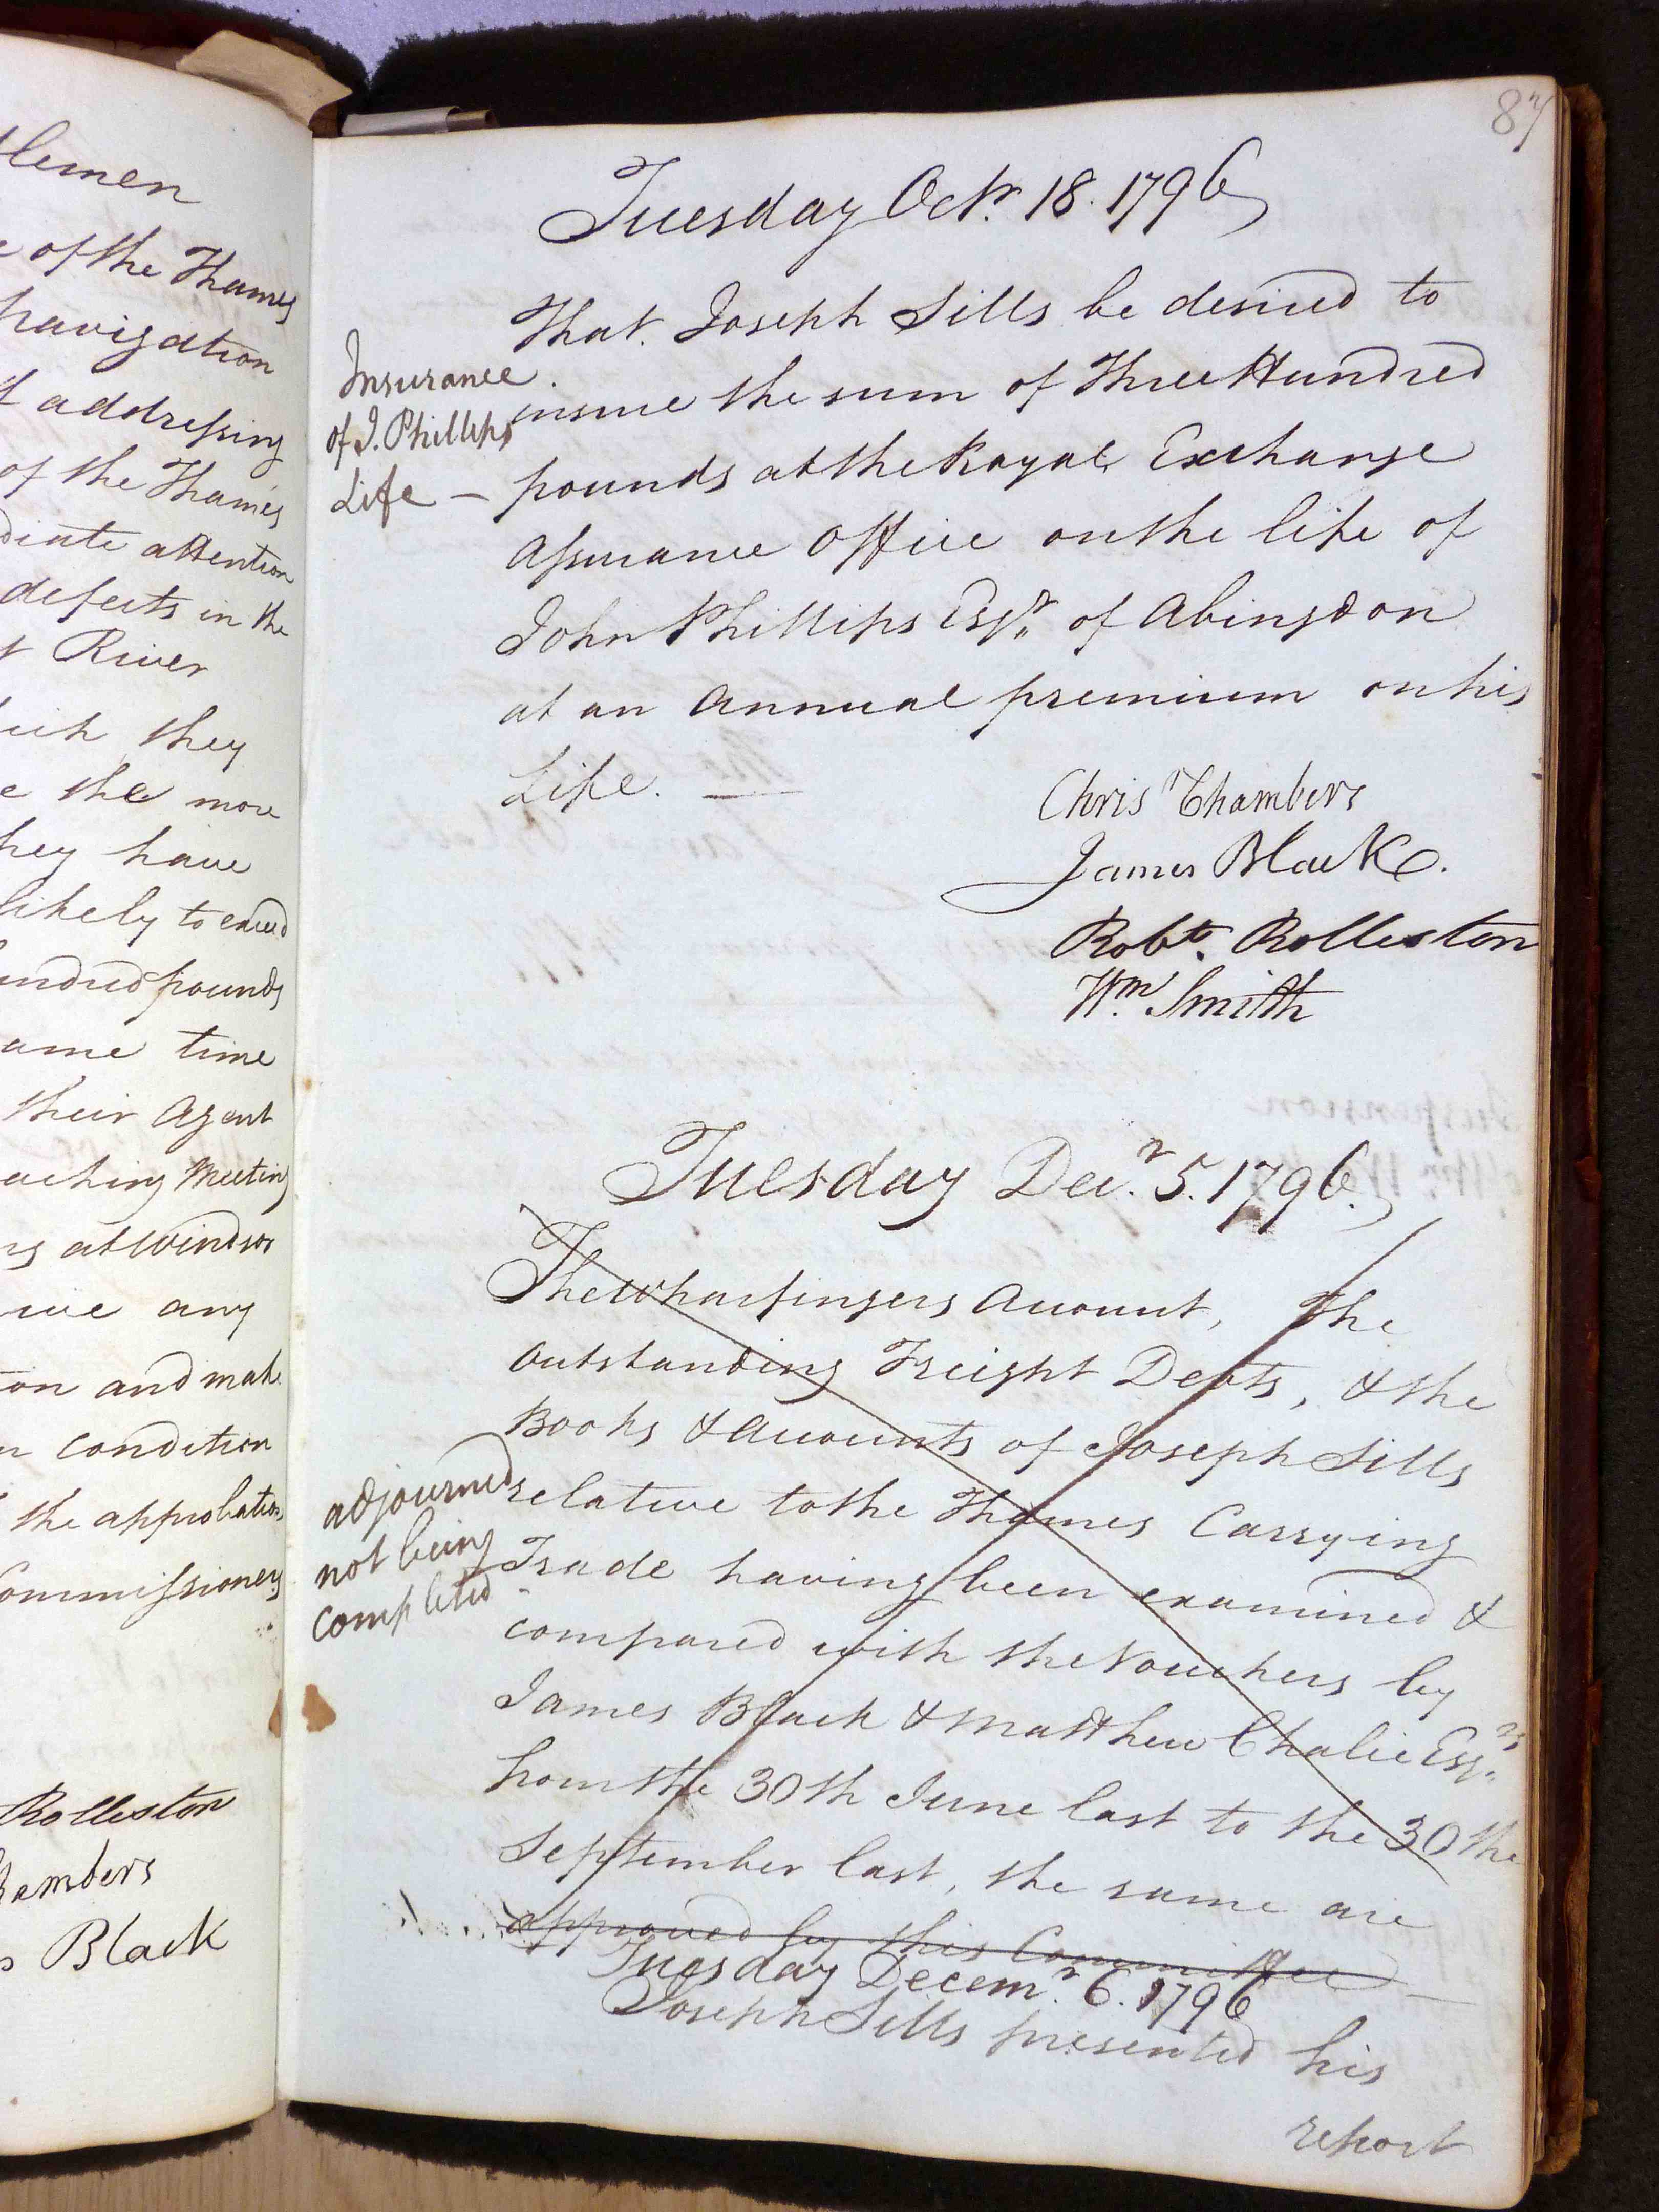 lemen
of the Thames
navigation
addressing
of the Thames
diate attention
defects in the
River
they
e the more
hey have
likely to exceed
undred pounds
ame time
their Agent
aching Meeting
at Windsor
ive any
on and make
condition
the approbation
Commissioners
Rolleston
hambers
Black
87
Tuesday Octr. 18. 1796
That. Joseph Sills be desired to
Insurance
of J. Phillips
Life —
insure the sum of Three Hundred
pounds at the Royal Exchange
Assurance Office on the life of
John Phillips Esqr. of Abingdon
at an annual premium on his
Life. —
Chrisr Chambers
James Black.
Robt. Rolleston
Wm. Smith
Tuesday Decr. 5. 1796.
The Wharfingers Account, The
outstanding Freight Debts, & the
Books & Accounts of Joseph Sills
adjourned
not being
completed
relative to the Thames Carrying
Trade having been examined &
compared with the Vouchers by
James Black & Matthew Chalie Esqrs.
from the 30th June last to the 30th
September last, the same are
approved by this Committee —
Tuesday Decemr. 6. 1796
Joseph Sills presented his
report